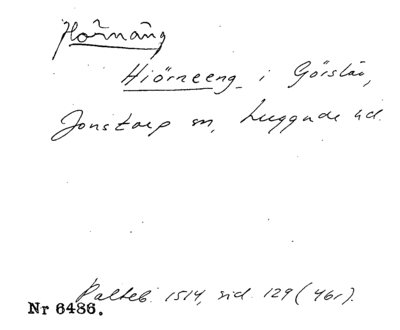 Hörnäng
Hiörneeng i Görslöv,
Jonstorp sn, Luggude hd.
Palteb. 1514, sid. 129 (46r).
Nr 6486.